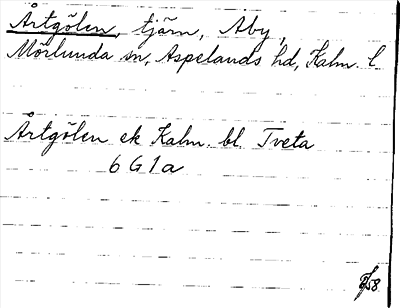 Årtgölen, tjärn, Åby,
Mörlunda sn, Aspelands hd, Kalm. l
Årtgölen ek Kalm. bl. Tveta
6 G 1 a